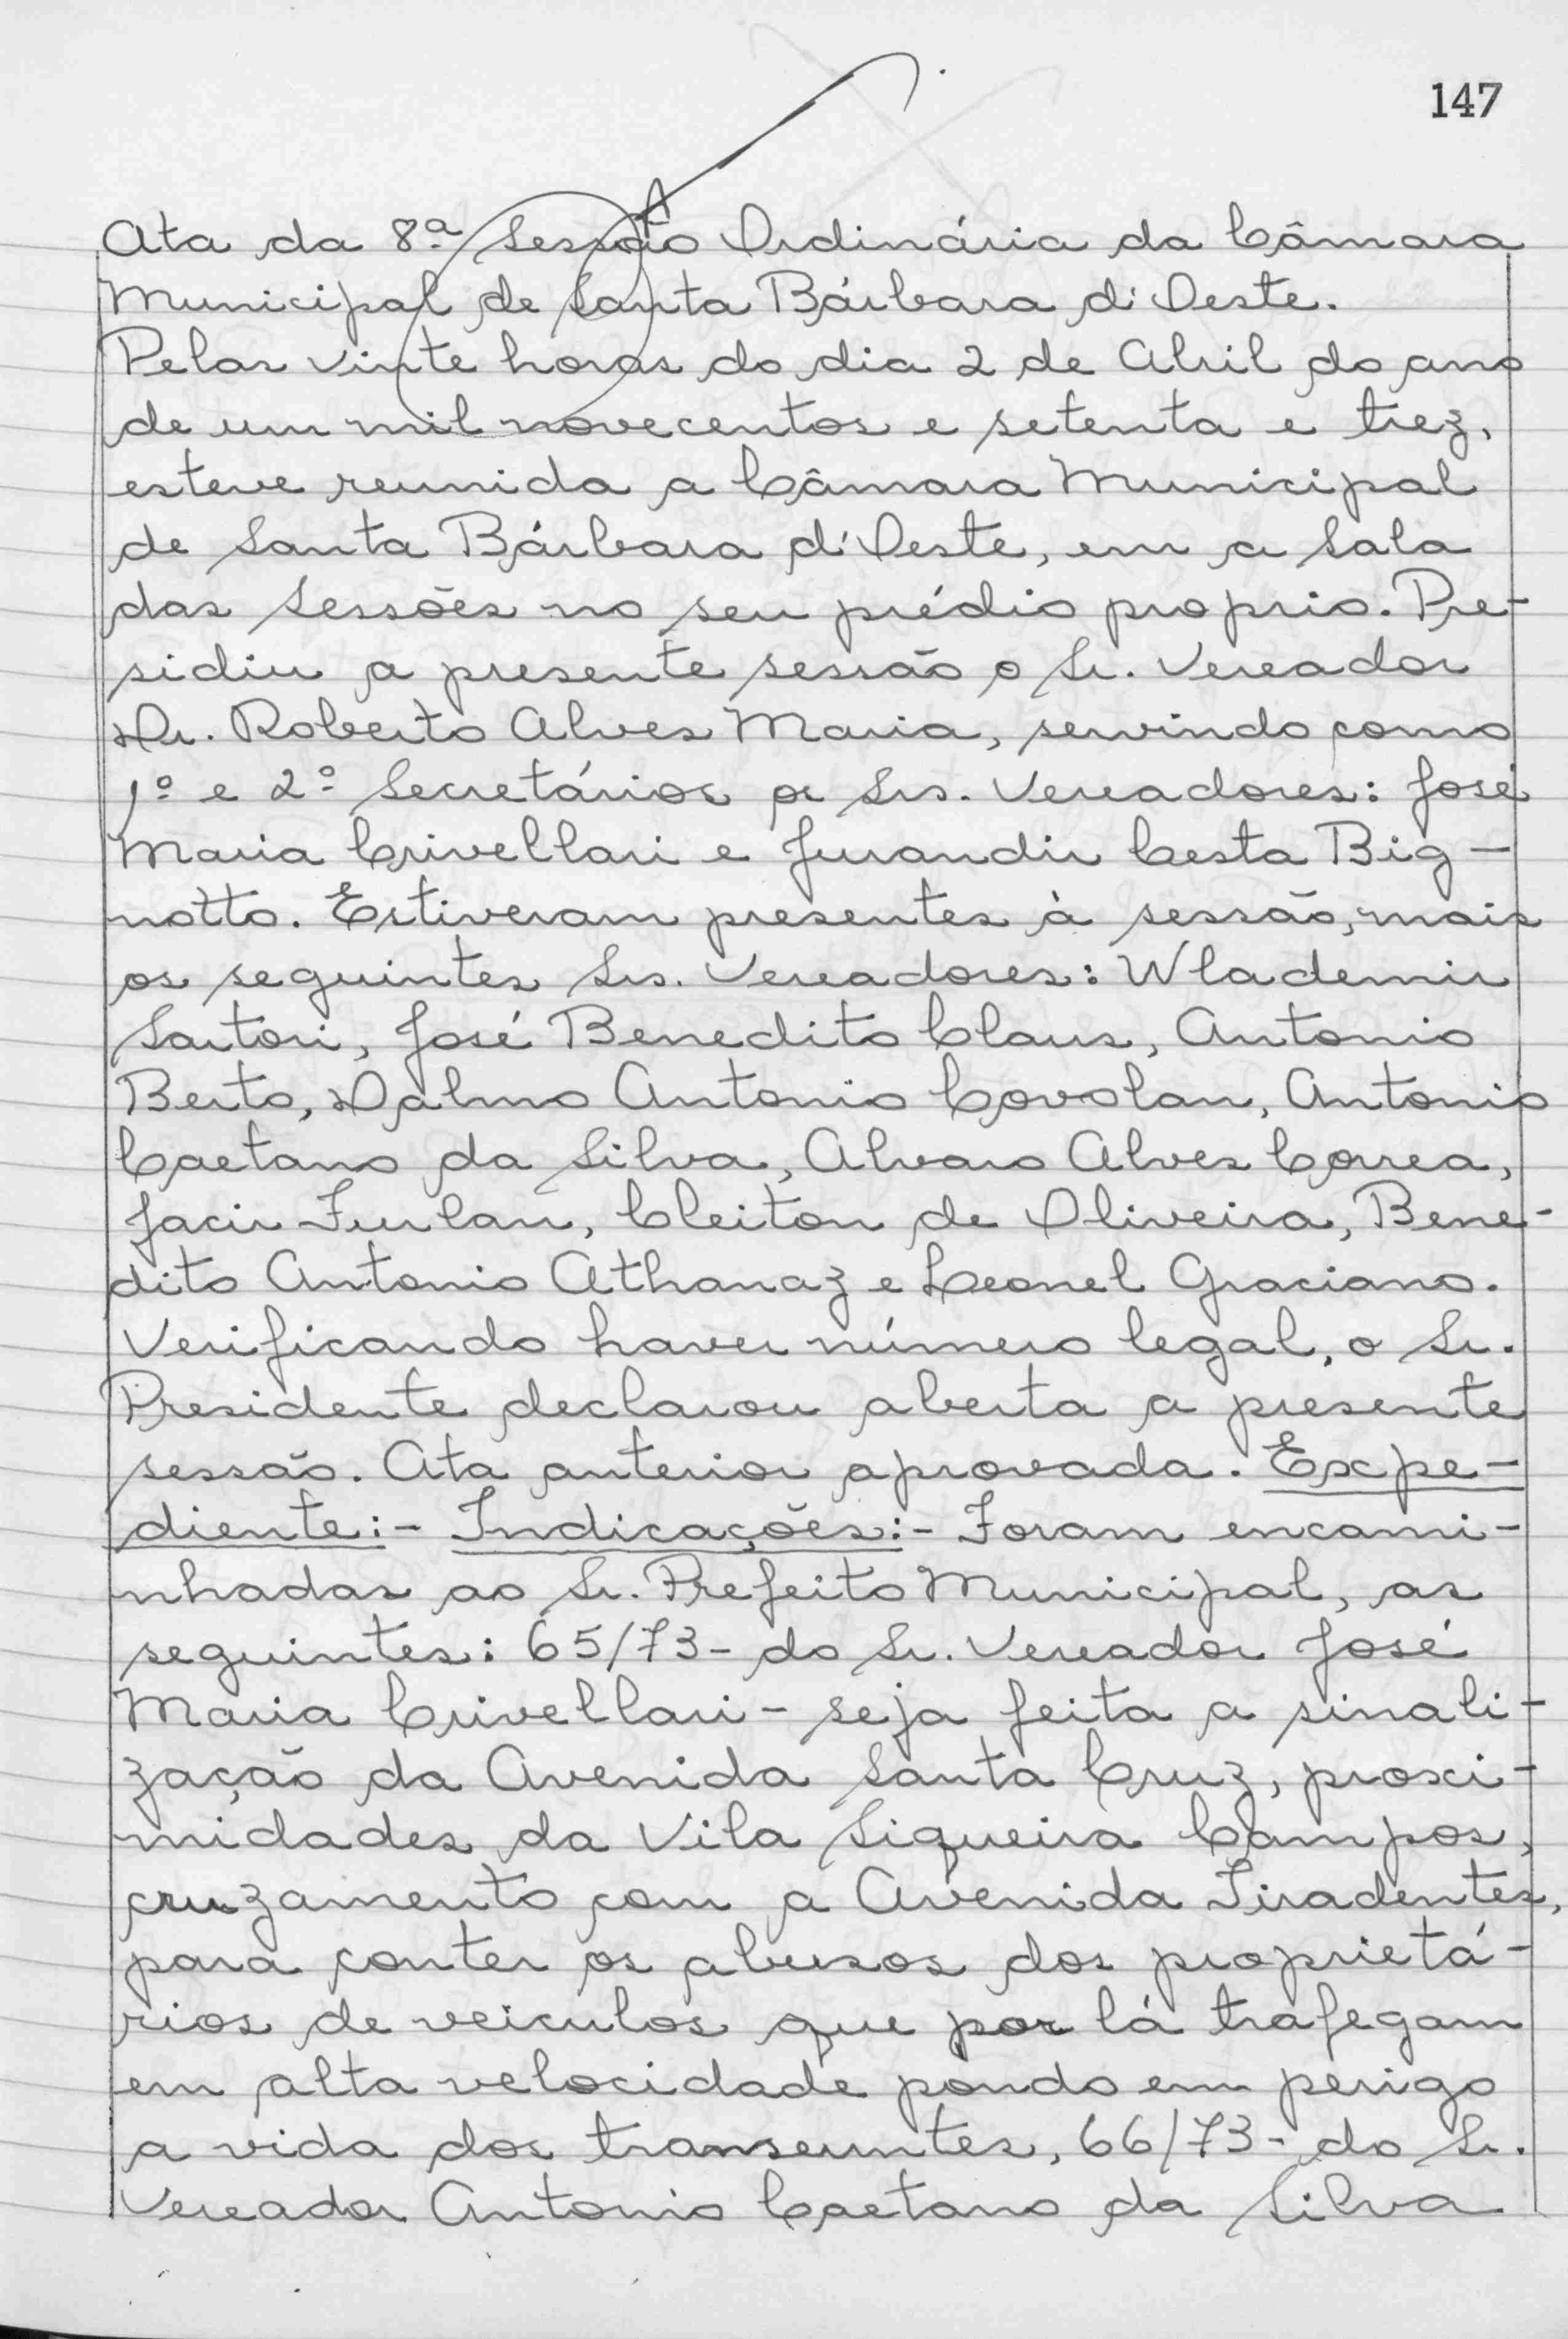 147
Ata da 8ª Sessão Ordinária da Câmara
Municipal de Santa Bárbara d'Oeste.
Pelas vinte horas do dia 2 de Abril do ano
de um mil novecentos e setenta e trez,
esteve reunida a Câmara Municipal
de Santa Bárbara d'Oeste, em a Sala
das Sessões no seu prédio proprio. Pre-
sidiu a presente sessão o Sr. Vereador
Dr. Roberto Alves Maria, servindo como
1º e 2º Secretários os Srs. Vereadores: José
Maria Crivellari e Jurandir Cesta Big-
notto. Estiveram presentes à sessão, mais
os seguintes Srs. Vereadores: Wlademir
Sartori, José Benedito Claus, Antonio
Berto, Dalmo Antonio Covolan, Antonio
Caetano da Silva, Alvaro Alves Correa,
Jacir Furlan, Cleiton de Oliveira, Bene-
dito Antonio Athanaz e Leonel Graciano.
Verificando haver número legal, o Sr.
Presidente declarou aberta a presente
sessão. Ata anterior aprovada. Expe-
diente:- Indicações:- Foram encami-
nhadas ao Sr. Prefeito Municipal, as
seguintes: 65/73- do Sr. Vereador José
Maria Crivellari - seja feita a sinali-
zação da Avenida Santa Cruz, proxi-
midades da Vila Siqueira Campos,
cruzamento com a Avenida Tiradentes,
para conter os abusos dos proprietá-
rios de veiculos que por lá trafegam
em alta velocidade pondo em perigo
a vida dos transeuntes, 66/73- do Sr.
Vereador Antonio Caetano da Silva